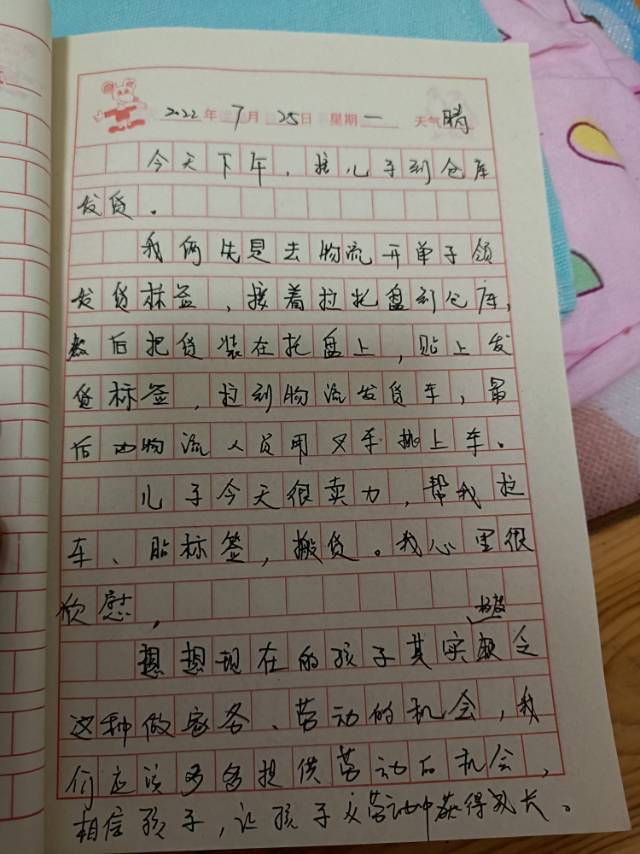 2022年 7月 25日 星期一 天气 晴
今天下午，接儿子到仓库
发货。
我俩先是去物流开单子领
发货标签，接着拉托盘到仓库，
然后把货装在托盘上，贴上发
货标签，拉到物流发货车，最
后由物流人员用叉车搬上车。
儿子今天很卖力，帮我拉
车、贴标签，搬货。我心里很
欣慰，
想想现在的孩子其实挺缺乏
这种做家务、劳动的机会，我
们应该多多提供劳动的机会，
相信孩子，让孩子从劳动中获得成长。